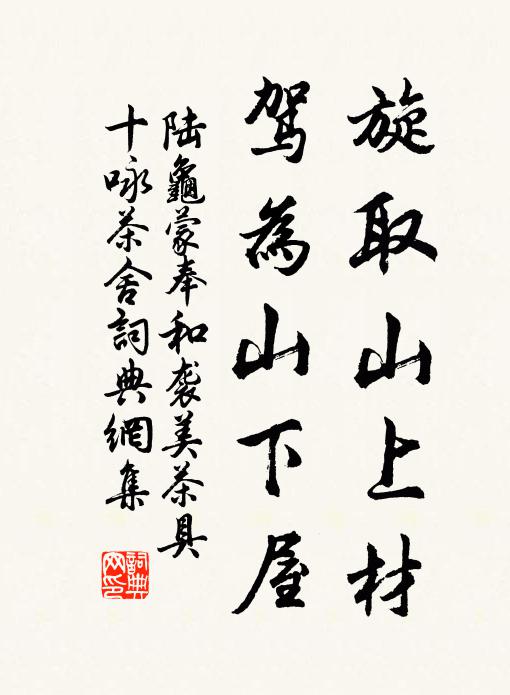 旋取山上材
驾為山下屋
陆龜蒙奉和袭美茶具
十咏茶舍詞典網集
詞典
网印